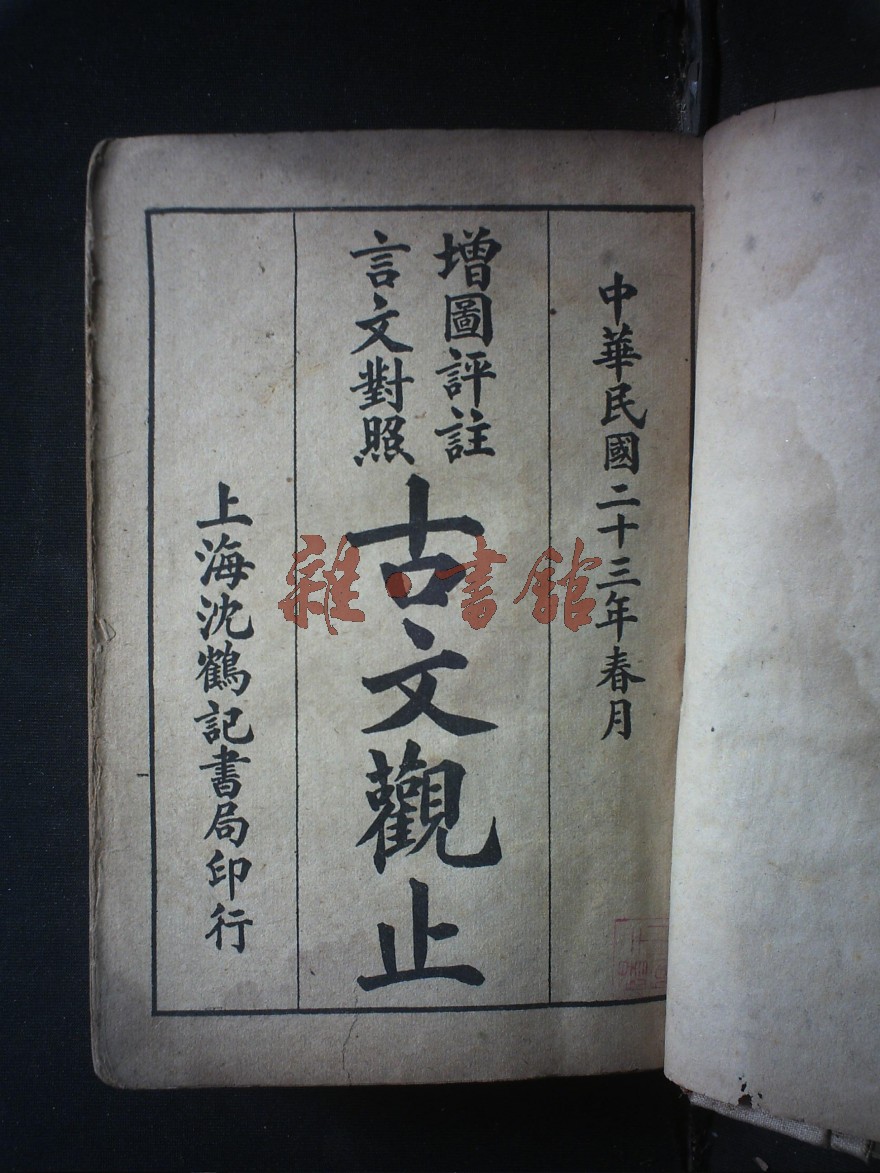 中華民國二十三年春月
增圖評註
言文對照
古文觀止
上海沈鶴記書局印行
雜·書館